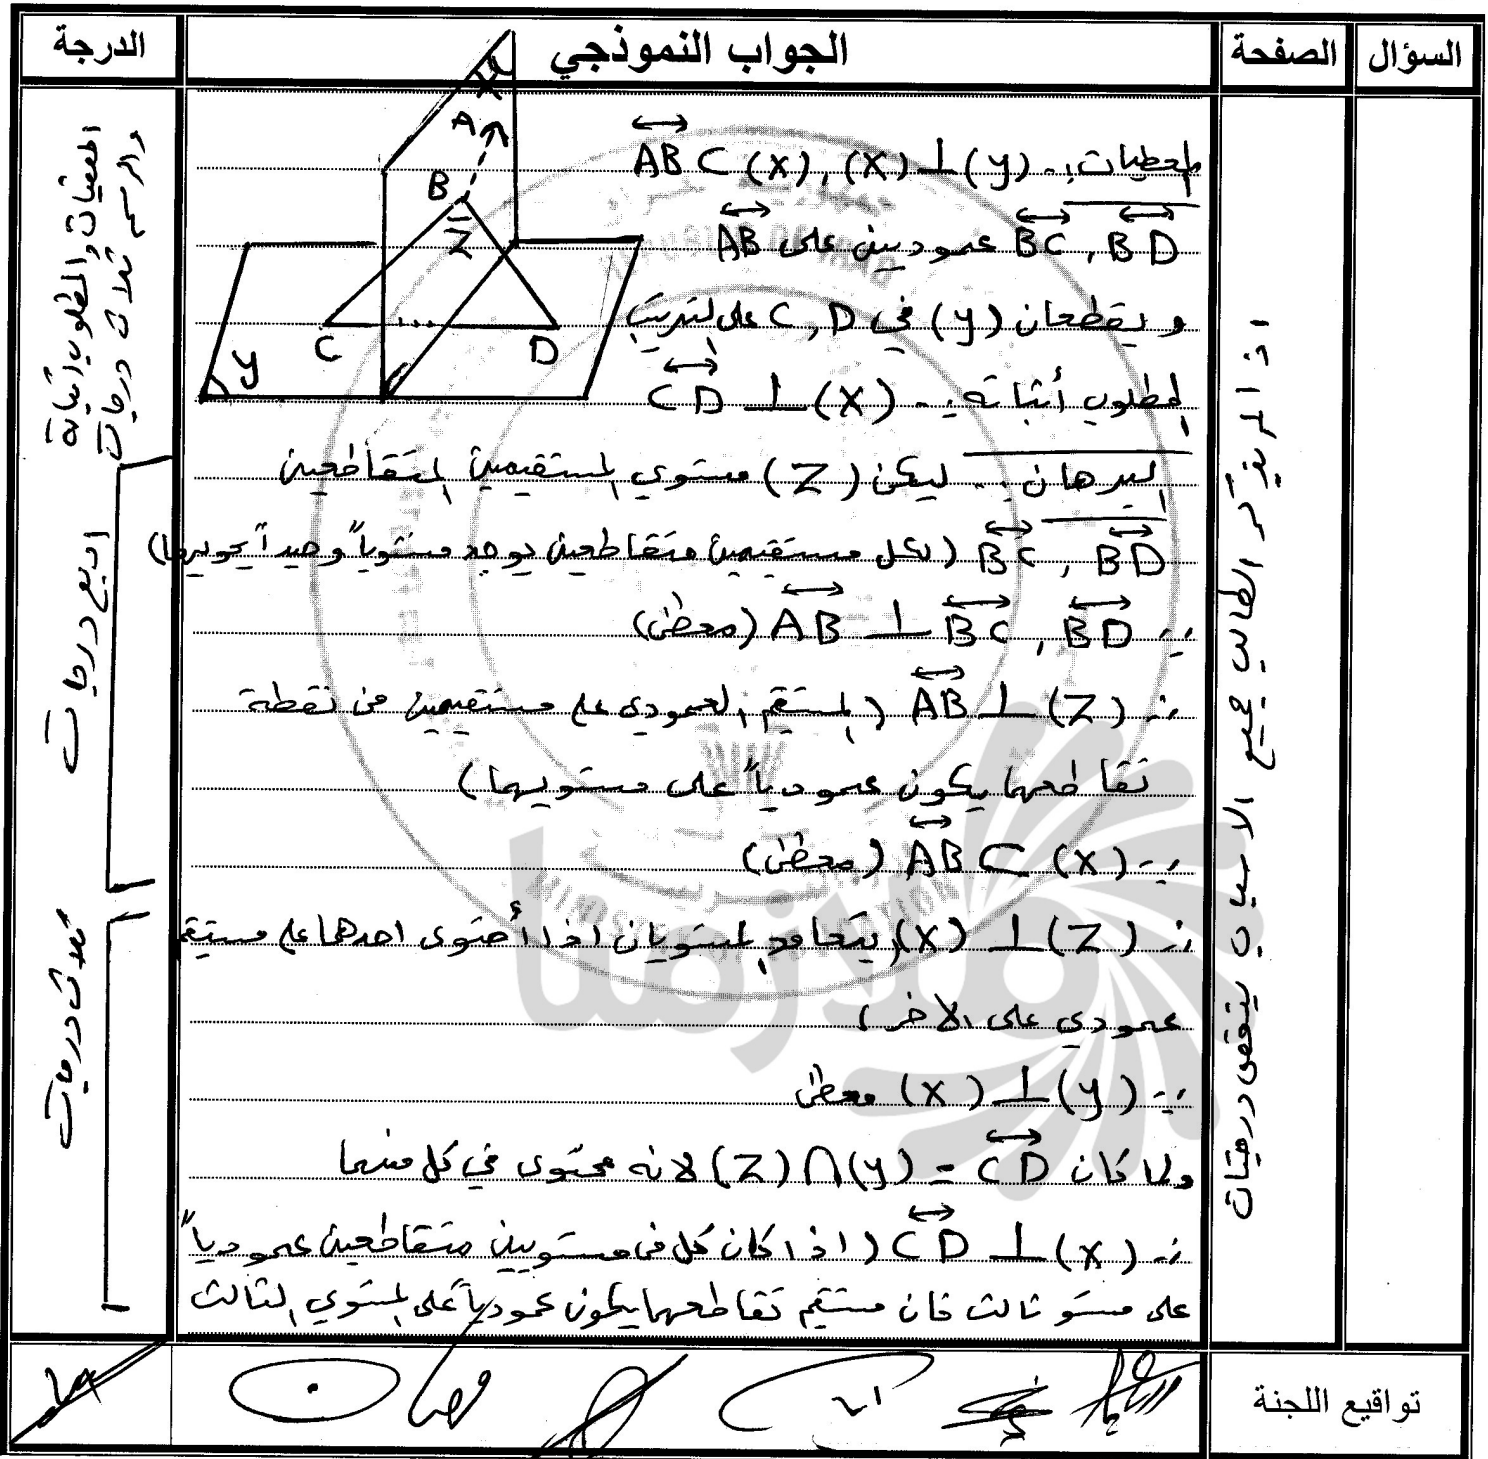 السؤال
الصفحة
الجواب النموذجي
الدرجة
X
A
B
Z
C
D
y
المعطيات :- (X) ⊥ (y) , (X) ⊃ AB
BC , BD عموديين على AB
و يقطعان (y) في C , D على الترتيب
المطلوب أثباته :- (X) ⊥ CD
البرهان :- ليكن (Z) مستوي المستقيمين المتقاطعين
BC , BD (لكل مستقيمين متقاطعين يوجد مستوياً وحيداً يحويهما)
∵ AB ⊥ BC , BD (معطى)
∴ (Z) ⊥ AB (المستقيم العمودي على مستقيمين من نقطة
تقاطعهما يكون عمودياً على مستويهما)
∵ AB ⊂ (X) (معطى)
∴ (Z) ⊥ (X) (يتعامد المستويان اذا أحتوى احدهما على مستقيم
عمودي على الاخر)
∵ (y) ⊥ (X) معطى
ولما كان CD = (y) ∩ (Z) لانه محتوى في كل منهما
∴ (X) ⊥ CD (اذا كان كل من مستويين متقاطعين عمودياً
على مستو ثالث فان مستقيم تقاطعهما يكون عمودياً على المستوي الثالث
اذا لم يذكر الطالب جميع الاسباب ينقص درجتان
والرسم ثلاث درجات
اربع درجات
ثلاث درجات
ملازمنا
تواقيع اللجنة